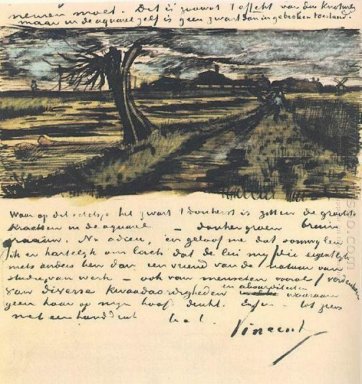 nemen moet. Dit is zoowat 't effekt van den Knotwilg
maar in de aquarel zelf is geen zwart dan in gebroken toestand.
Waar op dit schetsje het zwart 't donkerst is zitten de grootste
krachten in de aquarel — donkergroen bruin
graauw. Nu adieu, en geloof me dat soms
ik er hartelijk om lach dat de lui mij die eigentlijk
niets anders ben dan een vriend van de natuur van
studie van werk – ook van menschen vooral verdenken
van diverse kwaadaardigheden en absurditeiten waarvan
geen haar op mijn hoofd denkt. Enfin – tot ziens
met een handdruk t.à.t.
Vincent